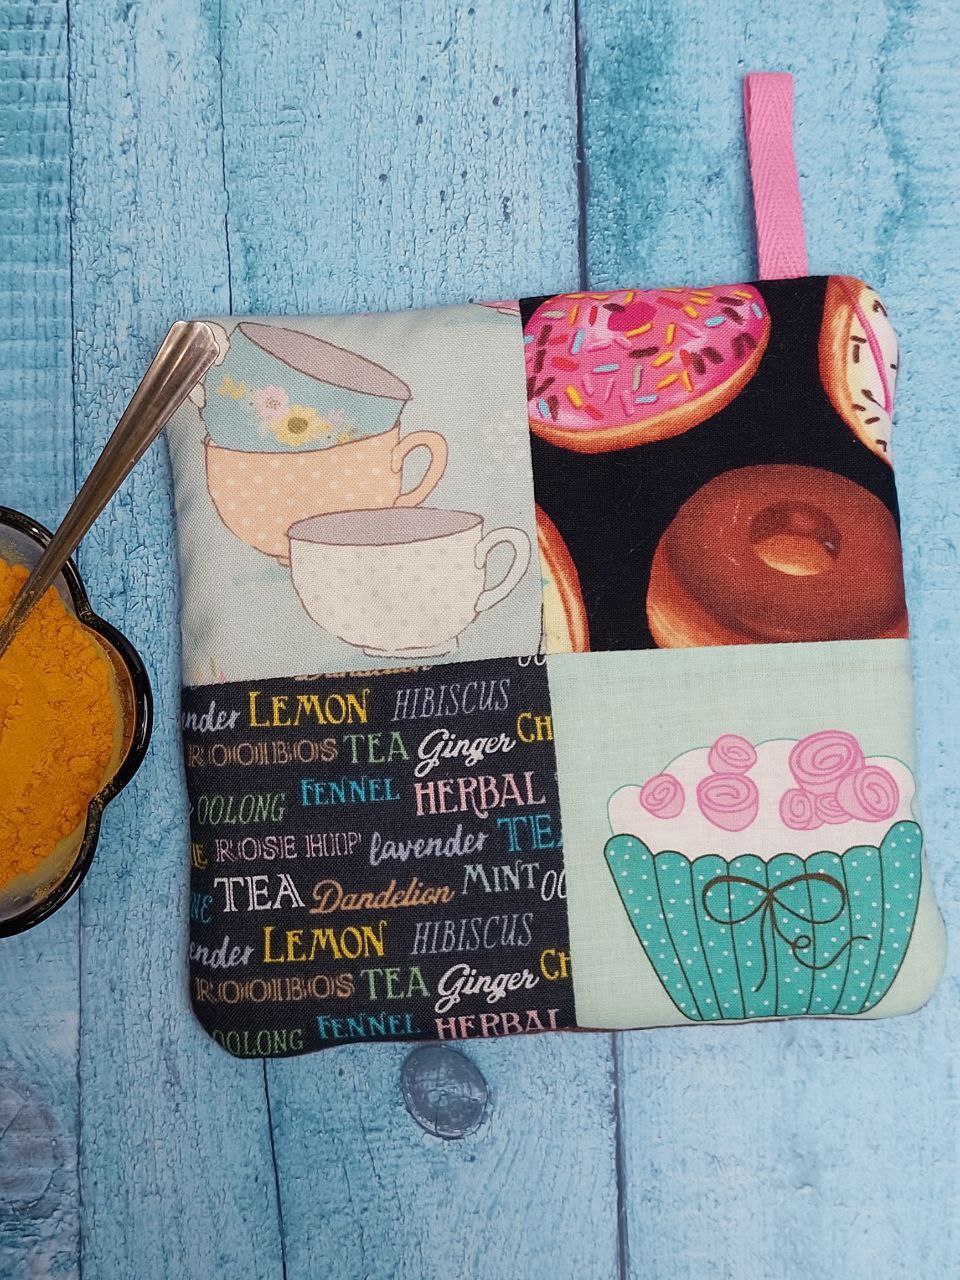 Dandelion OO
ender LEMON HIBISCUS
ROOIBOS TEA Ginger CH
OOLONG FENNEL HERBAL
E ROSE HIP lavender TEA
NE TEA Dandelion MINT OO
ender LEMON HIBISCUS
ROOIBOS TEA Ginger CH
OOLONG FENNEL HERBAL